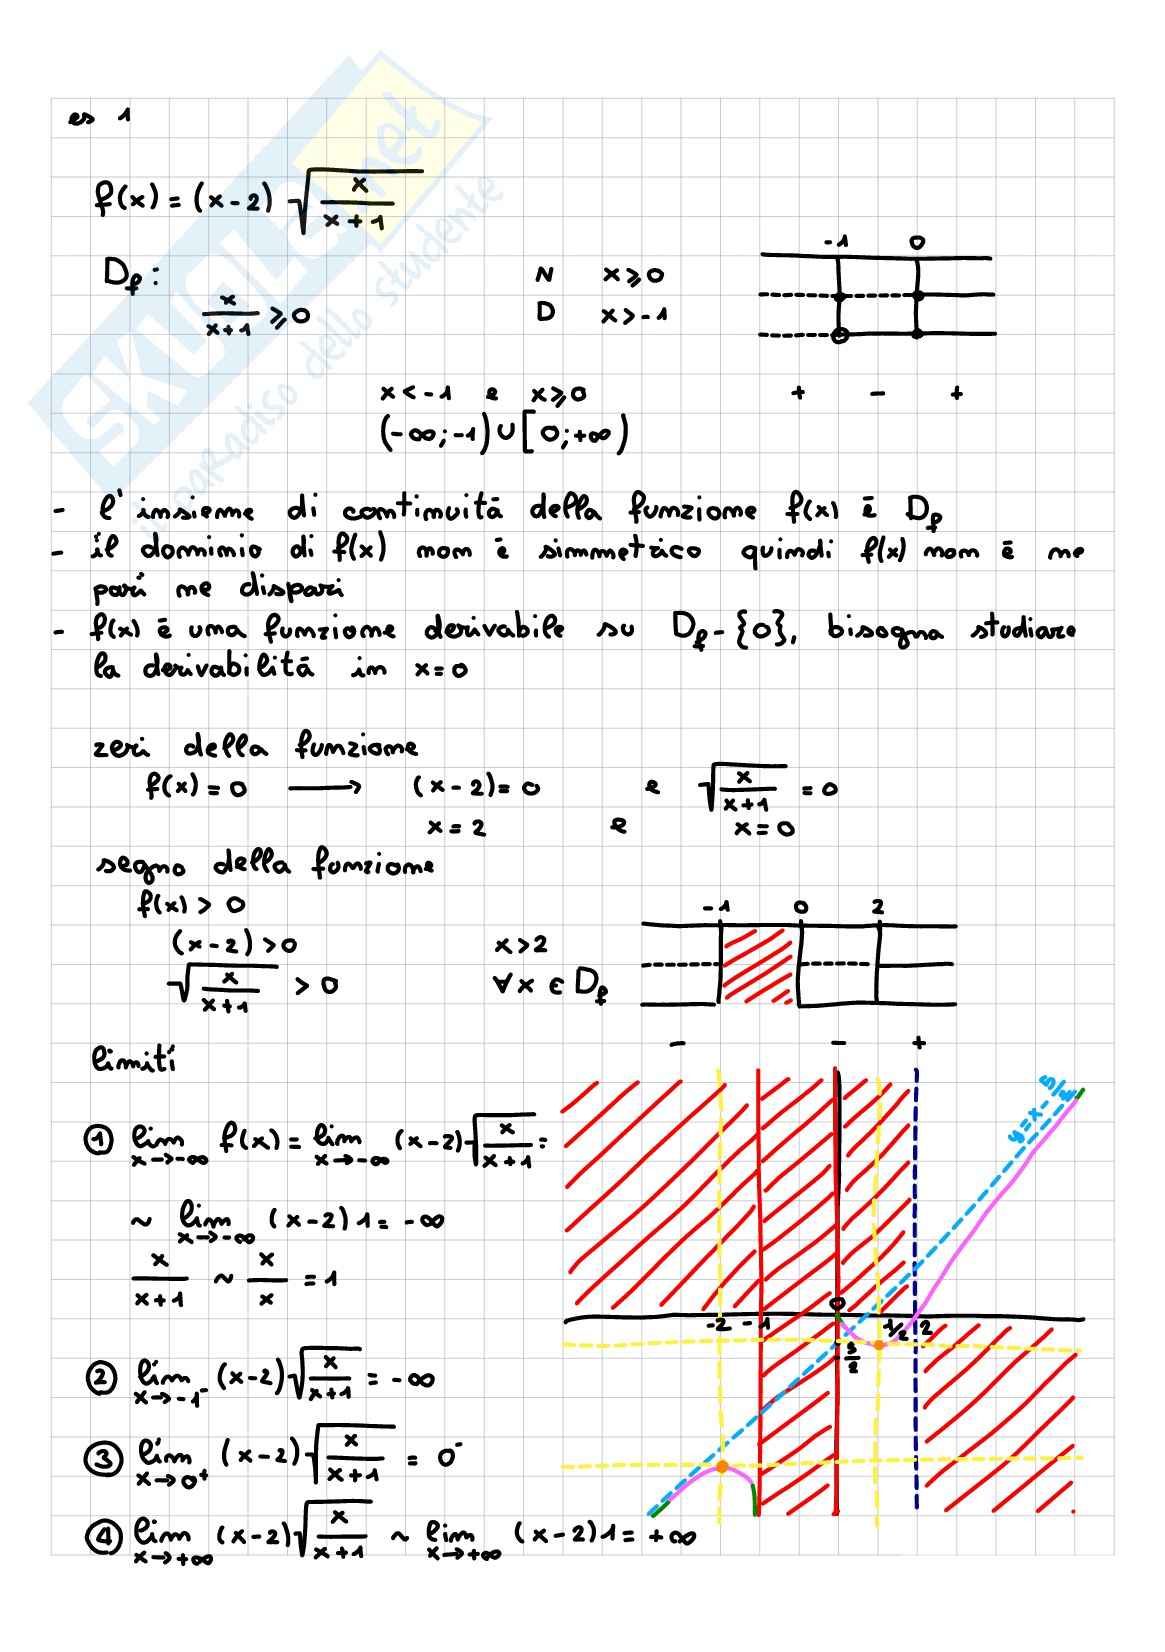 es 1
f(x) = (x-2) √(x/(x+1))
D_f :
x/(x+1) ⩾ 0
N x ⩾ 0
D x > -1
-1 0
+ - +
x < -1 e x ⩾ 0
(-∞; -1) ∪ [0; +∞)
- l'insieme di continuità della funzione f(x) è D_f
- il dominio di f(x) non è simmetrico quindi f(x) non è ne
pari ne dispari
- f(x) è una funzione derivabile su D_f - {0}, bisogna studiare
la derivabilità in x=0
zeri della funzione
f(x) = 0 → (x-2) = 0 e √(x/(x+1)) = 0
x = 2 e x = 0
segno della funzione
f(x) > 0
(x-2) > 0 x > 2
√(x/(x+1)) > 0 ∀x ∈ D_f
-1 0 2
- - +
limiti
① lim x→-∞ f(x) = lim x→-∞ (x-2) √(x/(x+1)) =
~ lim x→-∞ (x-2) 1 = -∞
x/(x+1) ~ x/x = 1
② lim x→-1⁻ (x-2) √(x/(x+1)) = -∞
③ lim x→0⁺ (x-2) √(x/(x+1)) = 0⁻
④ lim x→+∞ (x-2) √(x/(x+1)) ~ lim x→+∞ (x-2) 1 = +∞
y = x - 5/2
0
-2 -1 1/2 2
-5/2
SKUOLA.net
il paradiso dello studente